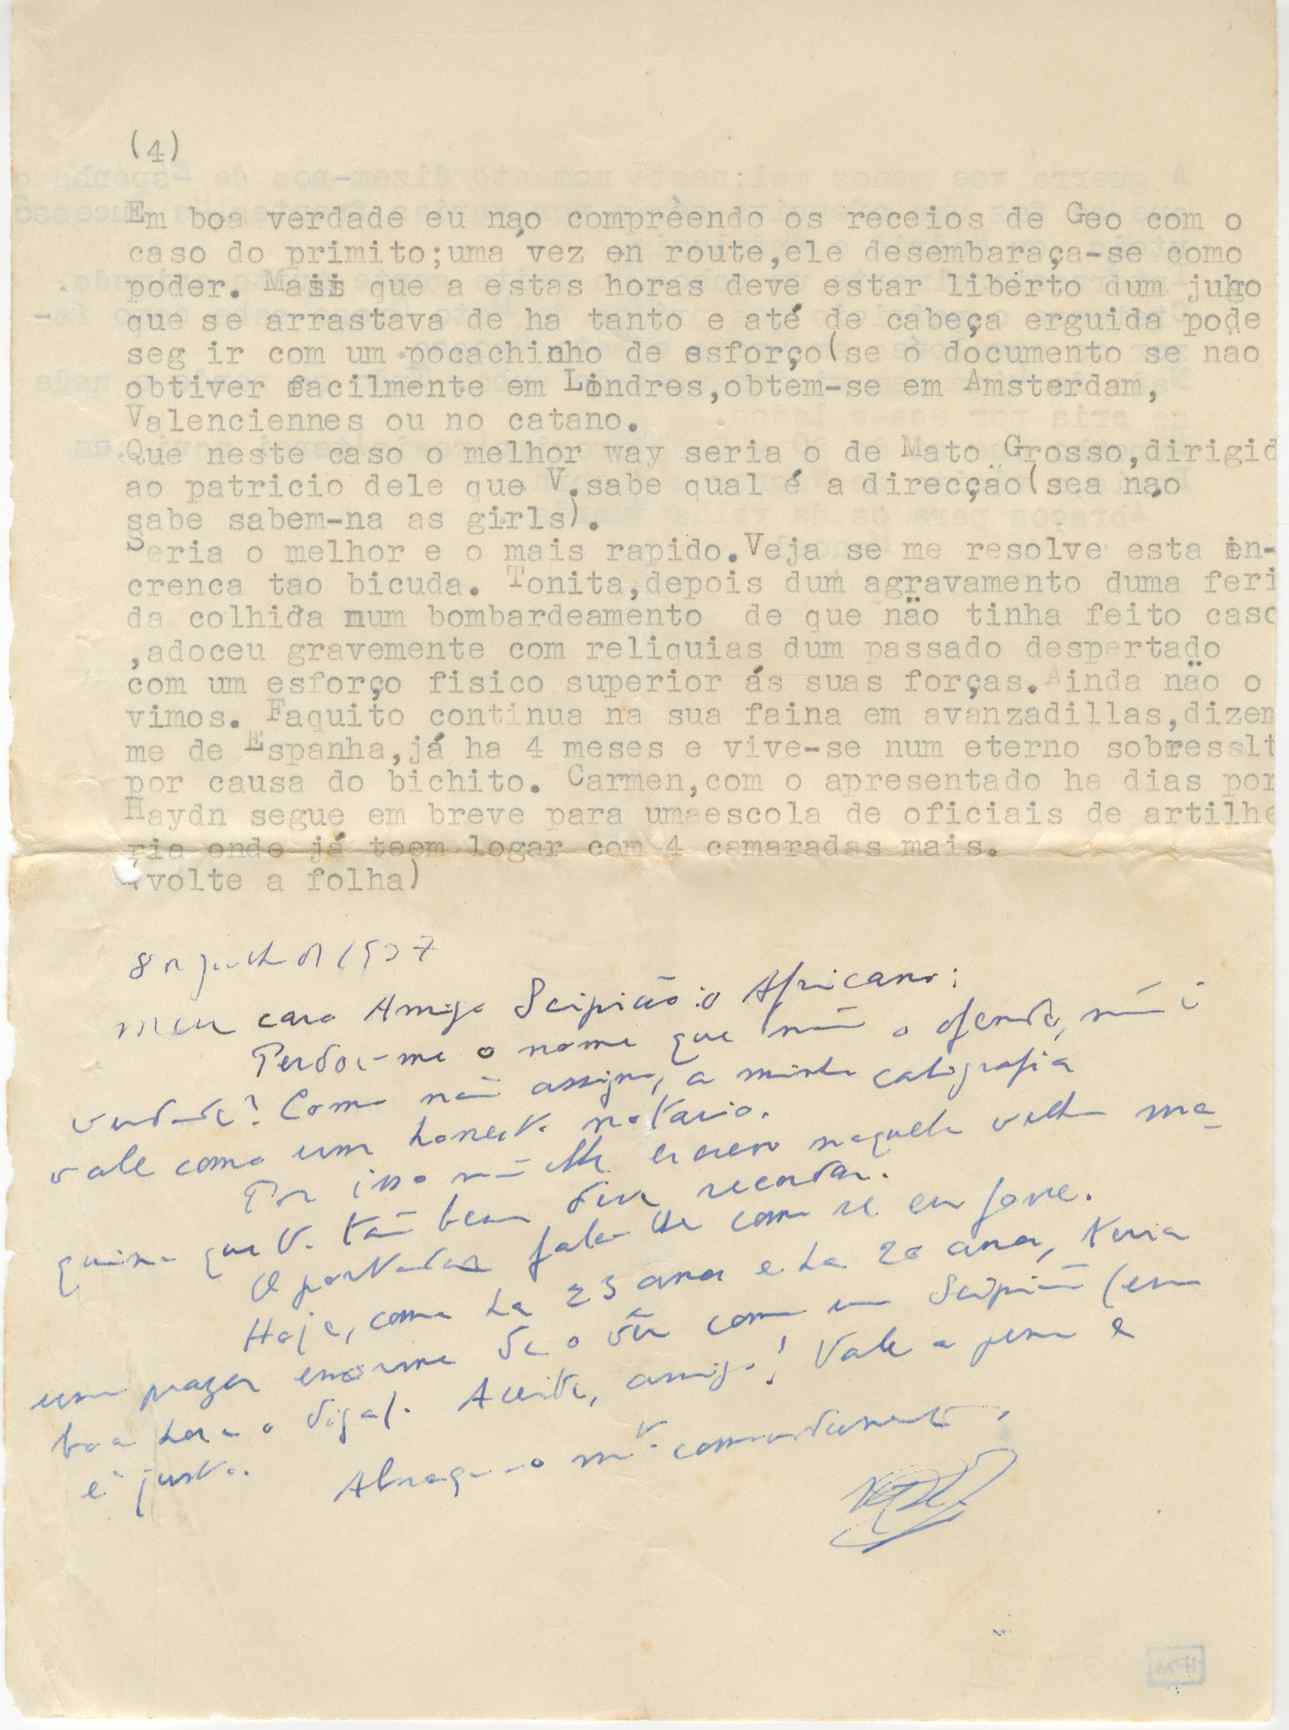 (4)
Em boa verdade eu não compréendo os receios de Geo com o
caso do primito;uma vez en route,ele desembaraça-se como
poder. Mais que a estas horas deve estar liberto dum jugo
que se arrastava de ha tanto e até de cabeça erguida pode
seg ir com um pocachinho de esforço(se o documento se nao
obtiver facilmente em Londres,obtem-se em Amsterdam,
Valenciennes ou no catano.
Que neste caso o melhor way seria o de Mato Grosso,dirigid
ao patricio dele que V.sabe qual é a direcção(sea não
sabe sabem-na as girls).
Seria o melhor e o mais rapido.Veja se me resolve esta en-
crenca tao bicuda. Tonita,depois dum agravamento duma feri
da colhida num bombardeamento de que não tinha feito caso
,adoceu gravemente com reliquias dum passado despertado
com um esforço fisico superior ás suas forças.Ainda não o
vimos. Faquito continua na sua faina em avanzadillas,dizem
me de Espanha,já ha 4 meses e vive-se num eterno sobresslt
por causa do bichito. Carmen,com o apresentado ha dias por
Haydn segue em breve para umaescola de oficiais de artilhe
ria onde já teem logar com 4 camaradas mais.
(volte a folha)
8 de julho de 1937
Meu caro Amigo Scipião o Africano:
Perdoe-me o nome que não o ofende, não é
verdade? Como não assigno, a minha caligrafia
vale como um honesto notario.
Por isso não lhe escrevo naquela velha ma-
quina que V. tão bem deve recordar.
O portador fala-lhe como se eu fosse.
Hoje, como ha 25 anos e ha 20 anos, teria
um prazer enorme de o vêr como um Scipião (em
boa hora o diga). Aceite, amigo! Vale a pena e
é justo.
Abraça-o mto comovidamente,